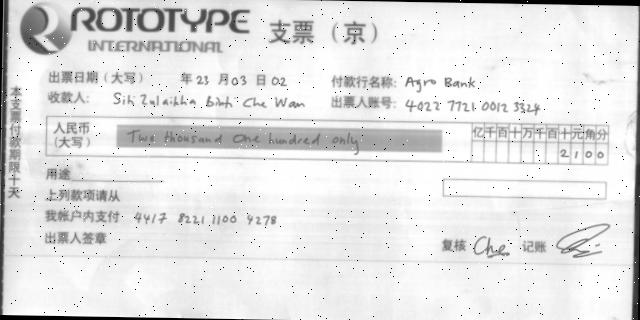 ROTOTYPE
INTERNATIONAL
支票（京）
出票日期（大写） 年 23 月 03 日 02 付款行名称: Agro Bank
收款人: Siti Zulaikha Binti Che Wan 出票人账号: 4022 7721 0012 3324
本支票付款期限十天
人民币（大写） Two thousand One hundred only 亿千百十万千百十元角分
2100
用途
上列款项请从
我帐户内支付 4417 8221 1100 4278
出票人签章 复核 Che 记账